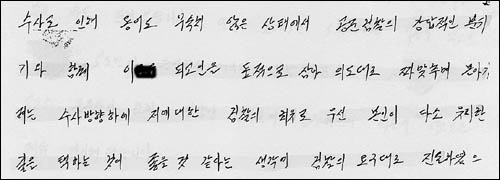 수사로 인해 용어도 익숙해 않은 상태에서 검찰의 강압적인 분위
기와 함께 이 피고인을 표적으로 삼아 의도대로 짜맞추어 몰아가
려는 수사방향하에 저에 대한 검찰의 회유로 우선 본인이 다소 불리한
길을 택하는 것이 좋을 것 같다는 생각에 검찰의 요구대로 진술하였으